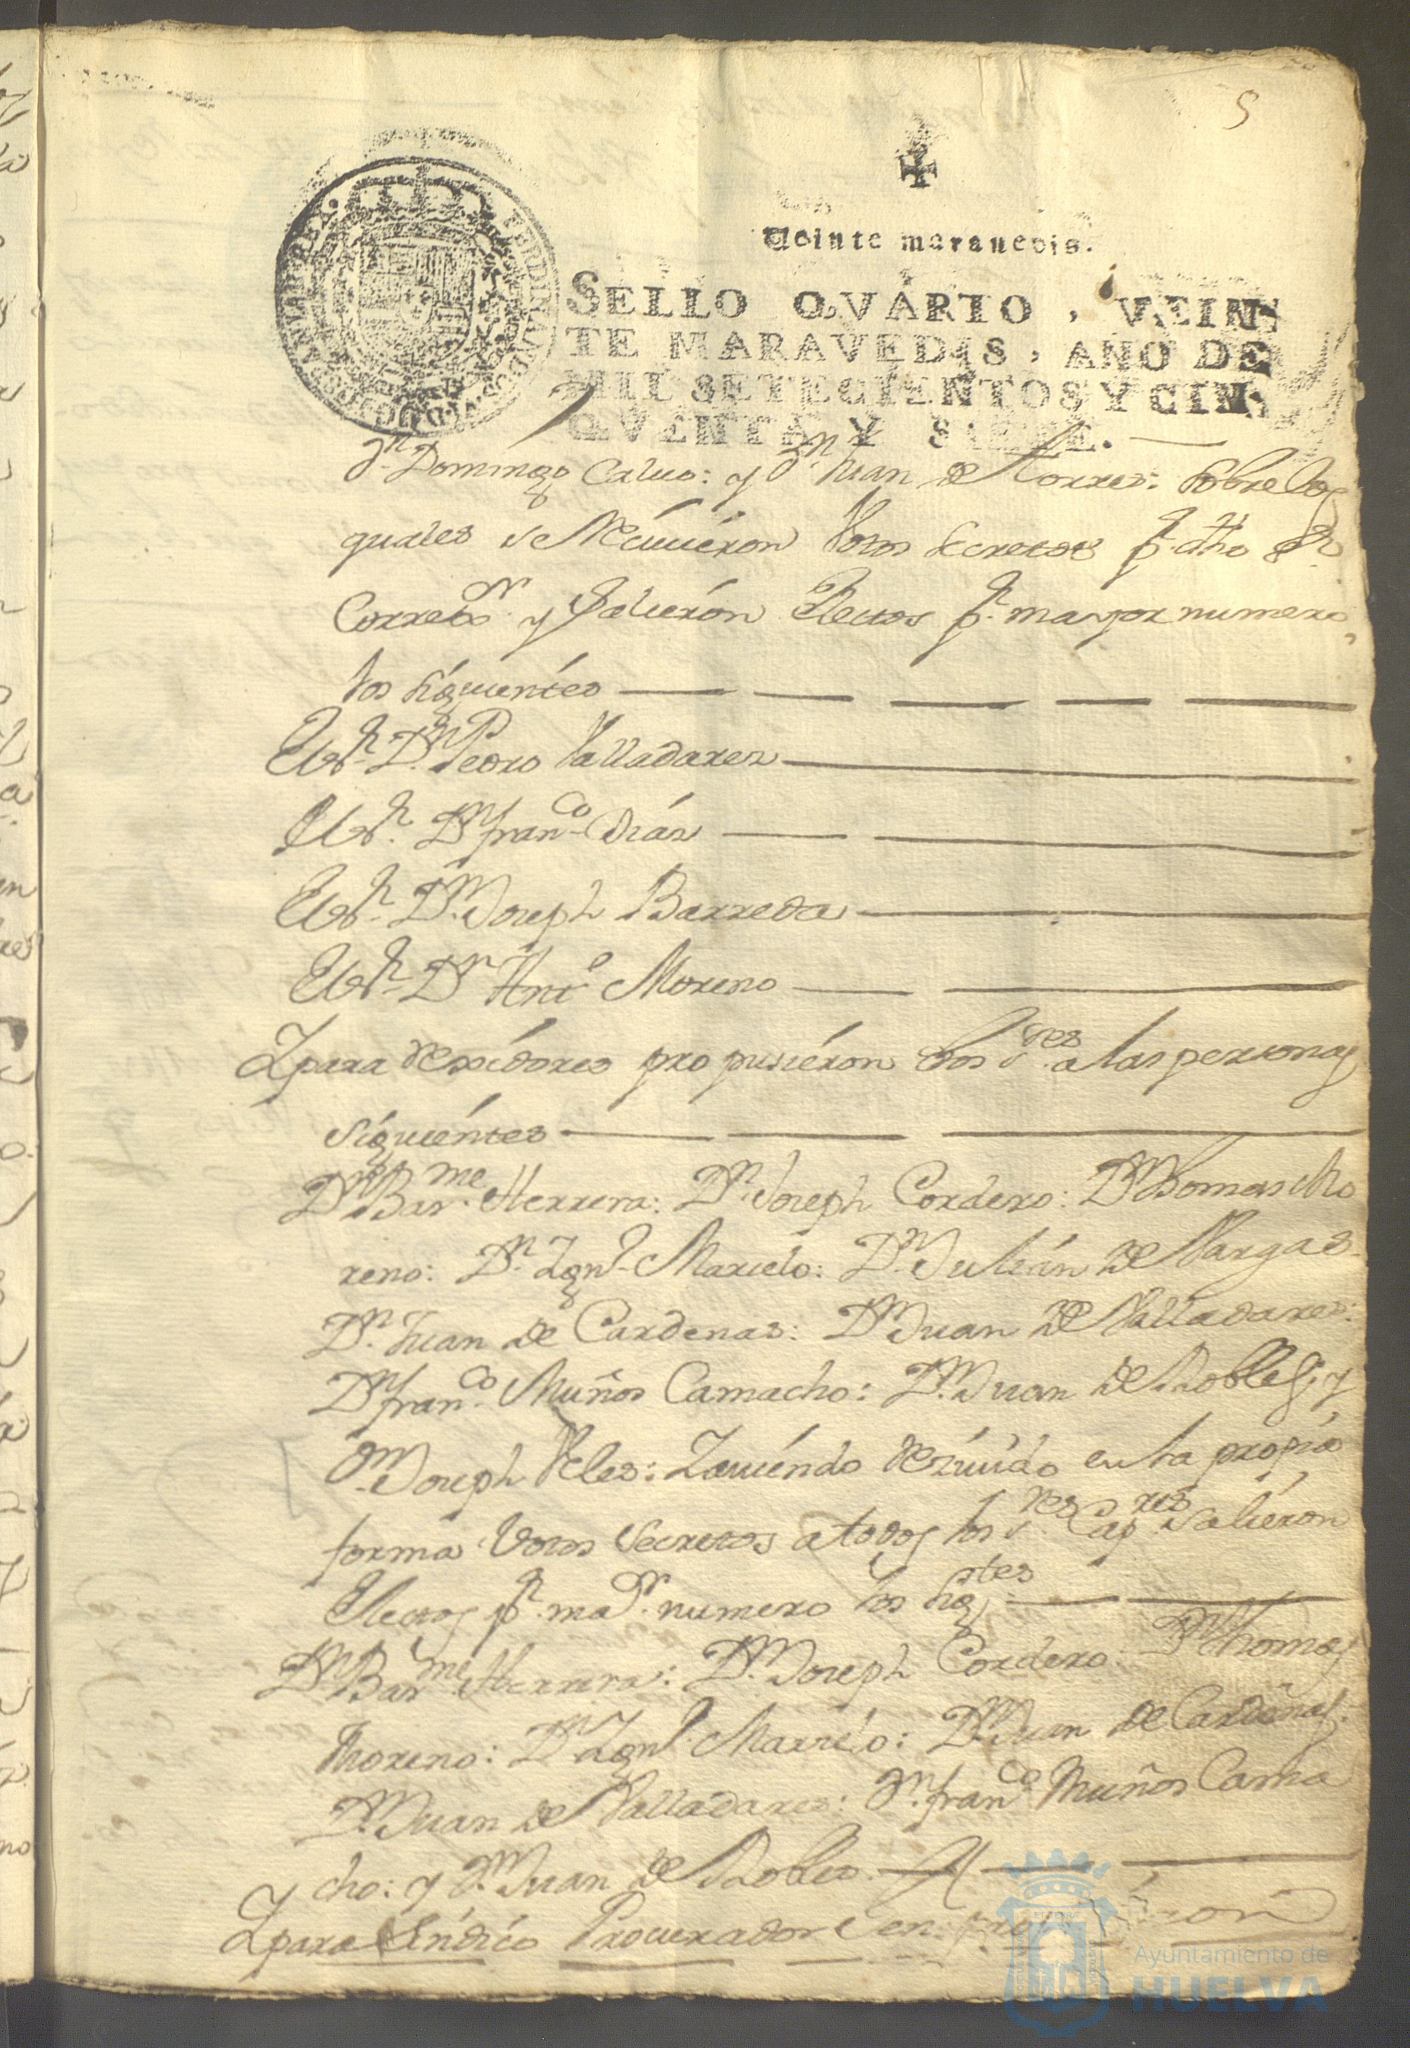 5
Veinte maravedis.
SELLO QVARTO, VEIN
TE MARAVEDIS, AÑO DE
MIL SETECIENTOS Y CIN
QVENTA Y SIETE.
Dn. Domingo Calvo: y Dn. Juan de Torres: Sobre los
quales se Recivieron Votos secretos pr. dho Sr
Corregor. y Salieron Electos pr. mayor numero
los siguientes
Dn. Pedro Valladares
Dn. Franco. Dias
Dn. Joseph Barreda
Dn. Anto. Moreno
Y para Rexidores propusieron dhos Sres. a las personas
siguientes
Dn. Barme. Herrera: Dn. Joseph Cordero: Dn. Thomas Mo
reno: Dn. Ygno. Marcelo: Dn. Julian de Vargas
Dn. Juan de Cardenas: Dn. Juan de Valladares:
Dn. Franco. Muños Camacho: Dn. Juan de Robles: y
Dn. Joseph Veles: Y aviendo Rezivido en la propia
forma Votos Secretos a todos los Sres. Capres. Salieron
Electos pr. maor. numero los sigtes
Dn. Barme. Herrera: Dn. Joseph Cordero: Dn. Thomas
Moreno: Dn. Ygno. Marcelo: Dn. Juan de Cardenas:
Dn. Juan de Valladares: Dn. Franco. Muños Cama
cho: y Dn. Juan de Robles
Y para Sindico Procurador Gen.
Ayuntamiento de
HUELVA